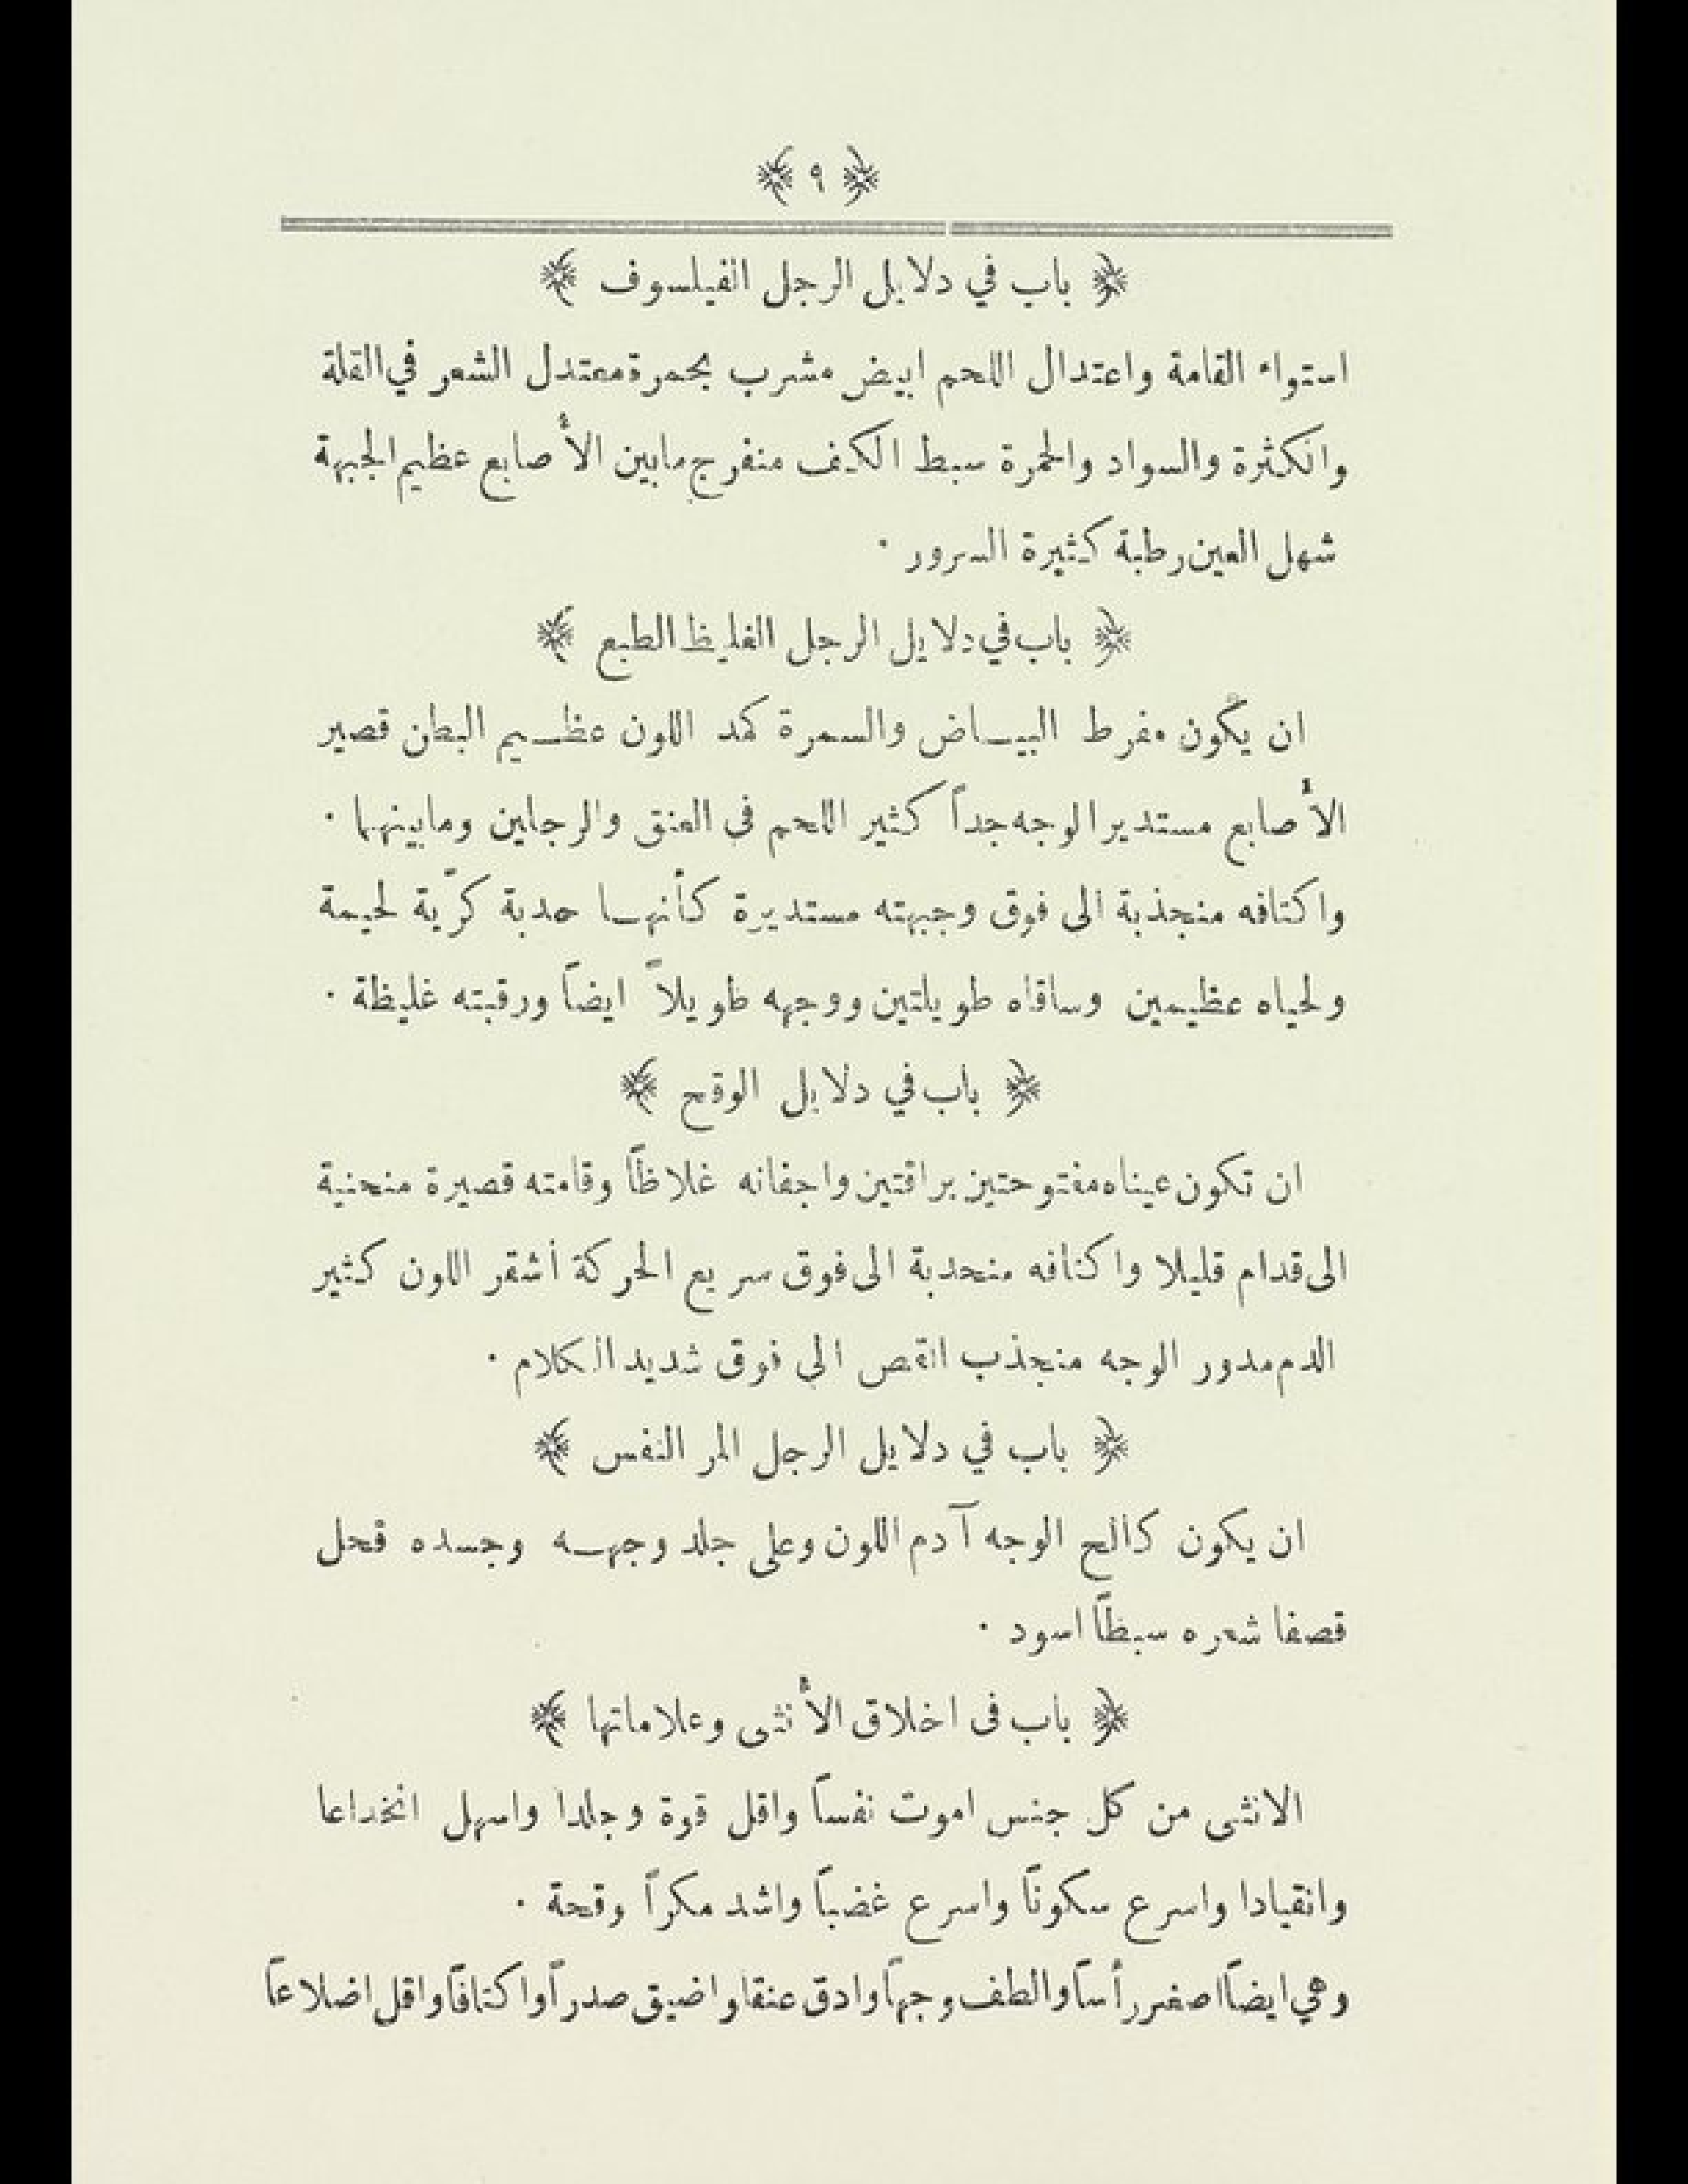 ﴿ ٩ ﴾
﴿ باب في دلايل الرجل الفيلسوف ﴾
استواء القامة واعتدال اللحم ابيض مشرب بحمرة معتدل الشعر في القلة
والكثرة والسواد والحمرة سبط الكف منفرج مابين الأصابع عظيم الجبهة
شهل العين رطبة كثيرة السرور ·
﴿ باب في دلايل الرجل الغليظ الطبع ﴾
ان يكون مفرط البياض والسمرة كمد اللون عظيم البطن قصير
الأصابع مستدير الوجه جداً كثير اللحم في العنق والرجلين ومابينهما ·
واكتافه منجذبة الى فوق وجبهته مستديرة كأنها حدبة كرّية لحيمة
ولحياه عظيمين وساقاه طويلتين ووجهه طويلاً ايضاً ورقبته غليظة ·
﴿ باب في دلايل الوقح ﴾
ان تكون عيناه مفتوحتين براقتين واجفانه غلاظاً وقامته قصيرة منحنية
الى قدام قليلا واكتافه منحدبة الى فوق سريع الحركة أشقر اللون كثير
الدم مدور الوجه منجذب القص الى فوق شديد الكلام ·
﴿ باب في دلايل الرجل المر النفس ﴾
ان يكون كالح الوجه آدم اللون وعلى جلد وجهه وجسده قحل
قصفا شعره سبطاً اسود ·
﴿ باب في اخلاق الأنثى وعلاماتها ﴾
الانثى من كل جنس اموت نفساً واقل قوة وجلدا واسهل انخداعا
وانقيادا واسرع سكوناً واسرع غضباً واشد مكراً وقحة ·
وهي ايضاً اصغر رأساً والطف وجهاً وادق عنقا واضيق صدراً واكتافاً واقل اضلاعاً